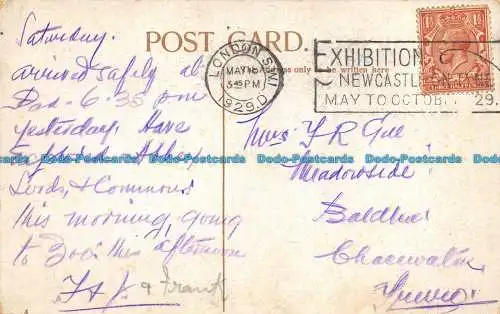 POST CARD.
Saturday.
arrived safely at
6-35 pm
yesterday. Have
explored Abbey
Lords, & Commons
this morning, going
to Zoo this afternoon
& Frank
only to be written here
LONDON. S.W.1
MAY 18
3.45 PM
1929.D
EXHIBITION
NEWCASTLE-ON-TYNE
MAY TO OCTOBER 1929.
1½
Mrs Y R Gill
Meadowside
Baldhu
Chacewater
Truro
Dodo-Postcards Dodo-Postcards Dodo-Postcards Dodo-Postcards